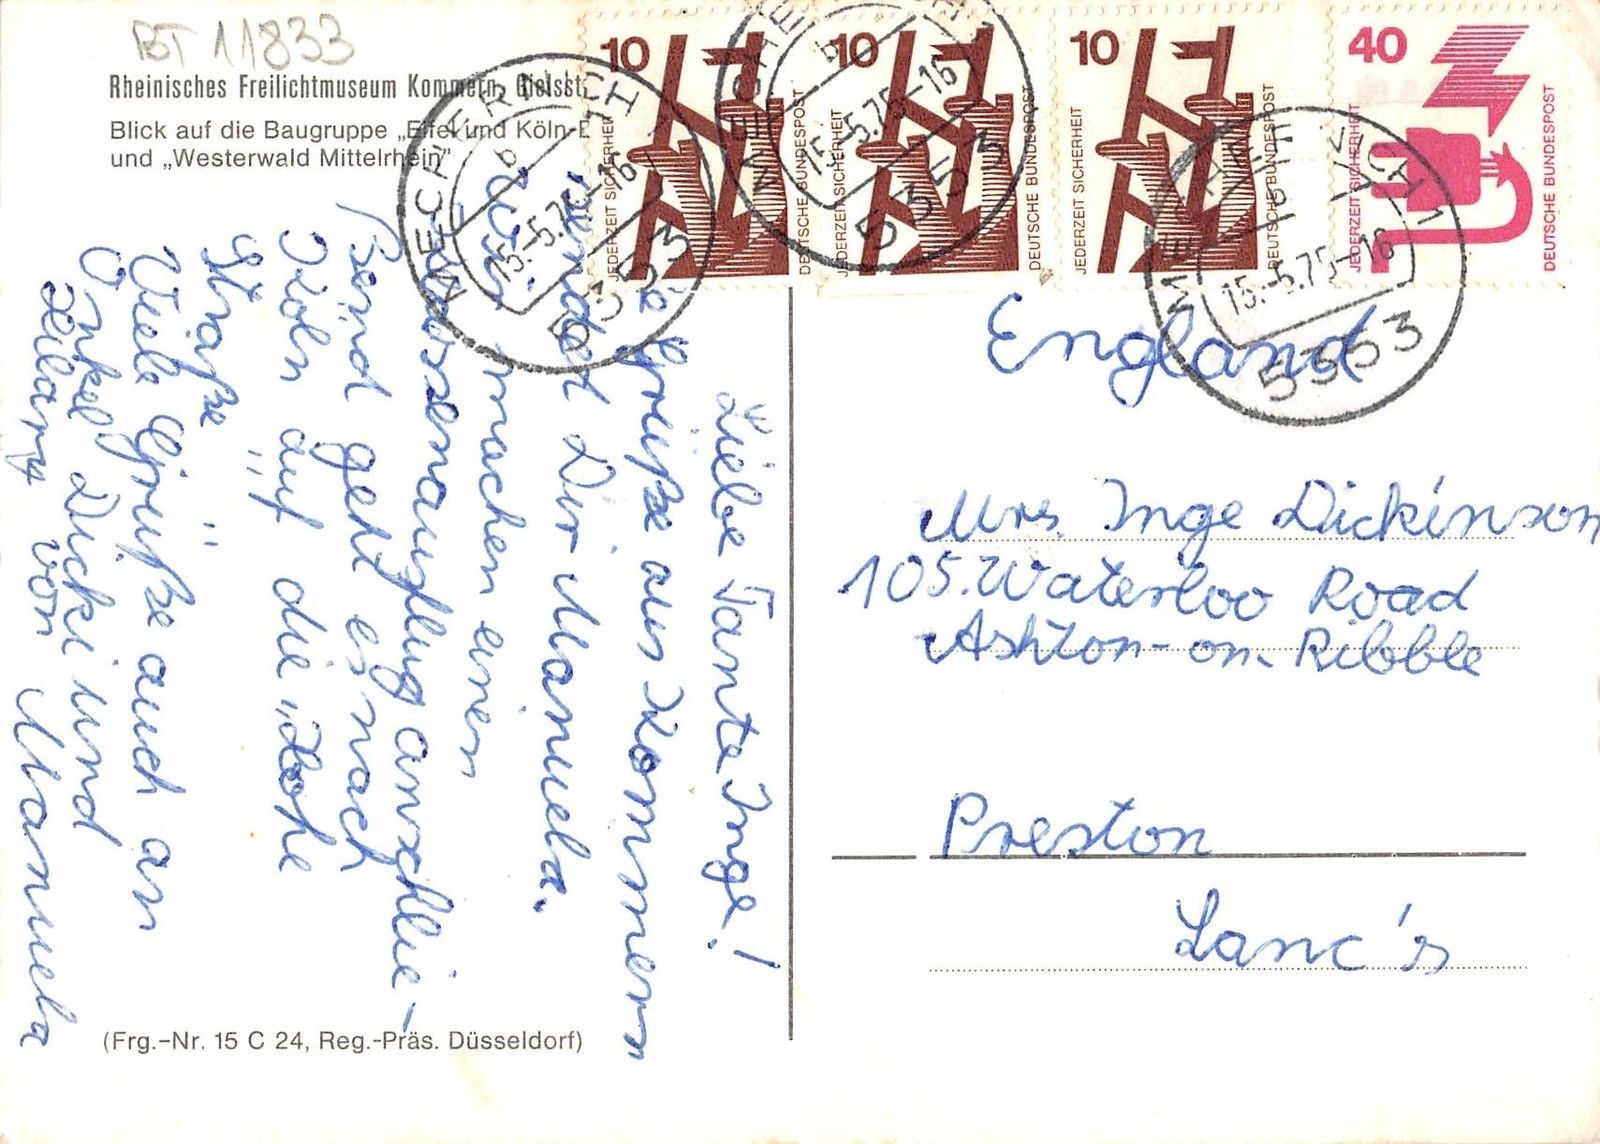 BT 11833
Rheinisches Freilichtmuseum Kommern,
Blick auf die Baugruppe „Eifel und Köln-
und „Westerwald Mittelrhein"
10
JEDERZEIT SICHERHEIT
DEUTSCHE BUNDESPOST
10
JEDERZEIT SICHERHEIT
DEUTSCHE BUNDESPOST
10
JEDERZEIT SICHERHEIT
DEUTSCHE BUNDESPOST
40
JEDERZEIT SICHERHEIT
DEUTSCHE BUNDESPOST
MECHERNICH
b
15.-5.75-16
5353
MECHERNICH
b
15.-5.75-16
5353
MECHERNICH 1
15.-5.75-16
5353
Liebe Tante Inge!
Grüße aus Kommern
sendet Dir Manuela.
Wir machen einen
Klassenausflug anschlie-
ßend geht es nach
Köln auf die „Hohe
Straße"
Viele Grüße auch an
Onkel Dicki und
von Manuela
England
Mrs. Inge Dickinson
105. Waterloo Road
Ashton-on-Ribble
Preston
Lanc's
(Frg.-Nr. 15 C 24, Reg.-Präs. Düsseldorf)